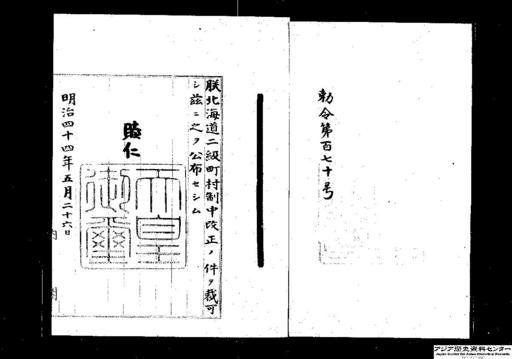 勅令第百七十号
朕北海道二級町村制中改正ノ件ヲ裁可
シ茲ニ之ヲ公布セシム
睦仁
天皇御璽
明治四十四年五月二十六日
アジア歴史資料センター
Japan Center for Asian Historical Records